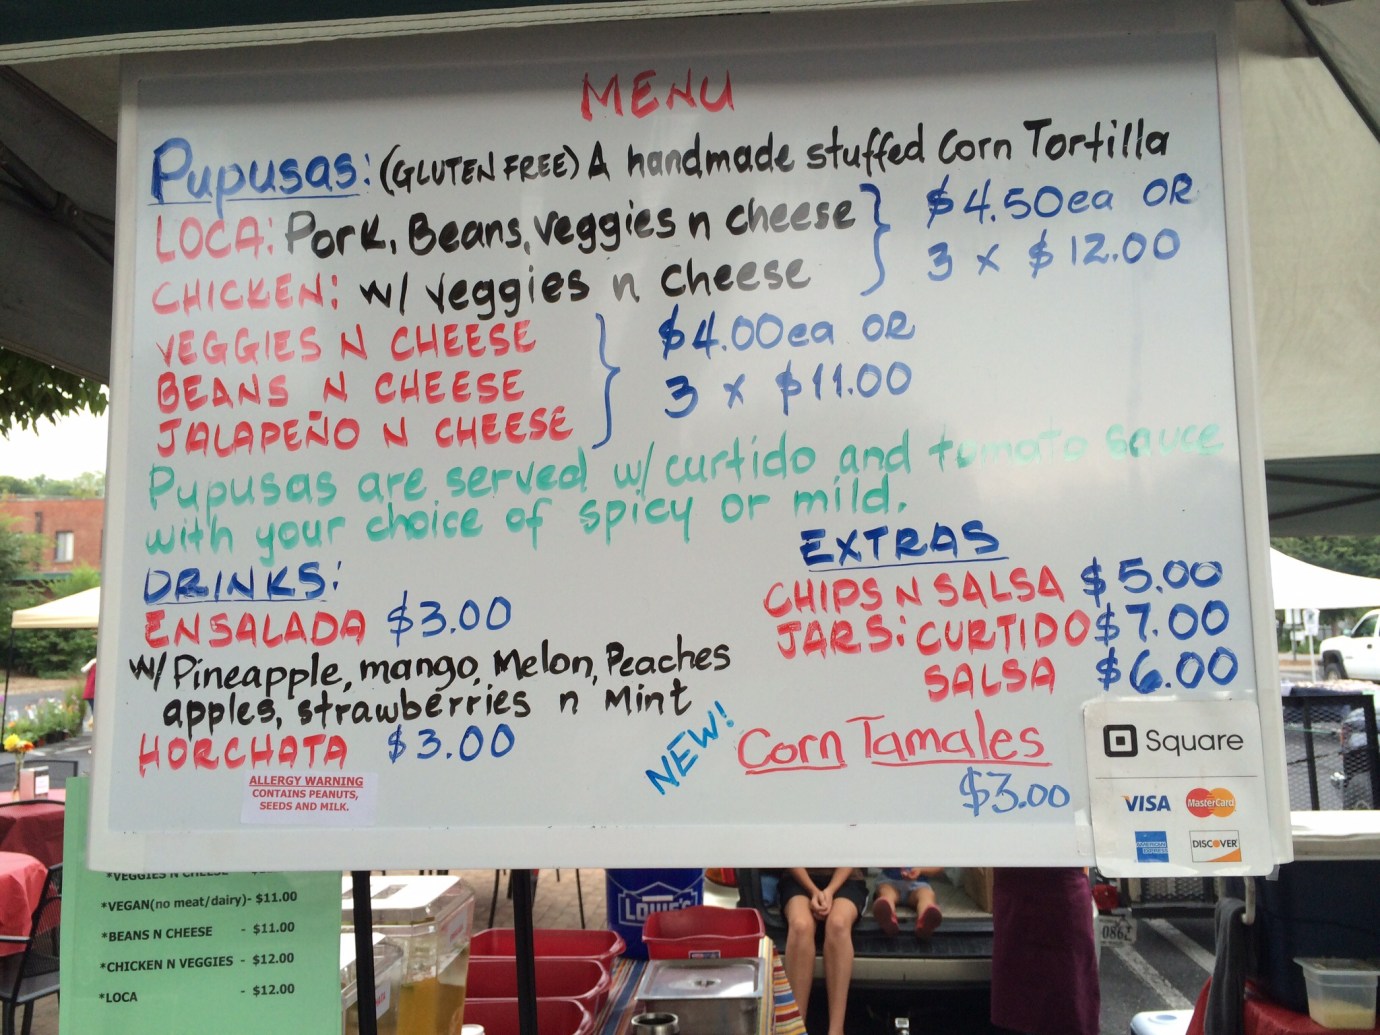 MENU
Pupusas: (GLUTEN FREE) A handmade stuffed Corn Tortilla
LOCA: Pork, Beans, Veggies n cheese
$4.50ea OR
CHICKEN: w/ Veggies n Cheese
3 x $12.00
VEGGIES N CHEESE
$4.00ea OR
BEANS N CHEESE
3 x $11.00
JALAPEÑO N CHEESE
Pupusas are served w/ curtido and tomato sauce
with your choice of spicy or mild.
DRINKS:
ENSALADA $3.00
w/ Pineapple, mango, Melon, Peaches
apples, strawberries n Mint
HORCHATA $3.00
ALLERGY WARNING
CONTAINS PEANUTS,
SEEDS AND MILK.
EXTRAS
CHIPS N SALSA $5.00
JARS: CURTIDO $7.00
SALSA $6.00
NEW!
Corn Tamales
$3.00
Square
VISA MasterCard
AMERICAN EXPRESS DISCOVER
*VEGGIES N CHEESE
*VEGAN(no meat/dairy)- $11.00
*BEANS N CHEESE - $11.00
*CHICKEN N VEGGIES - $12.00
*LOCA - $12.00
LOWE'S